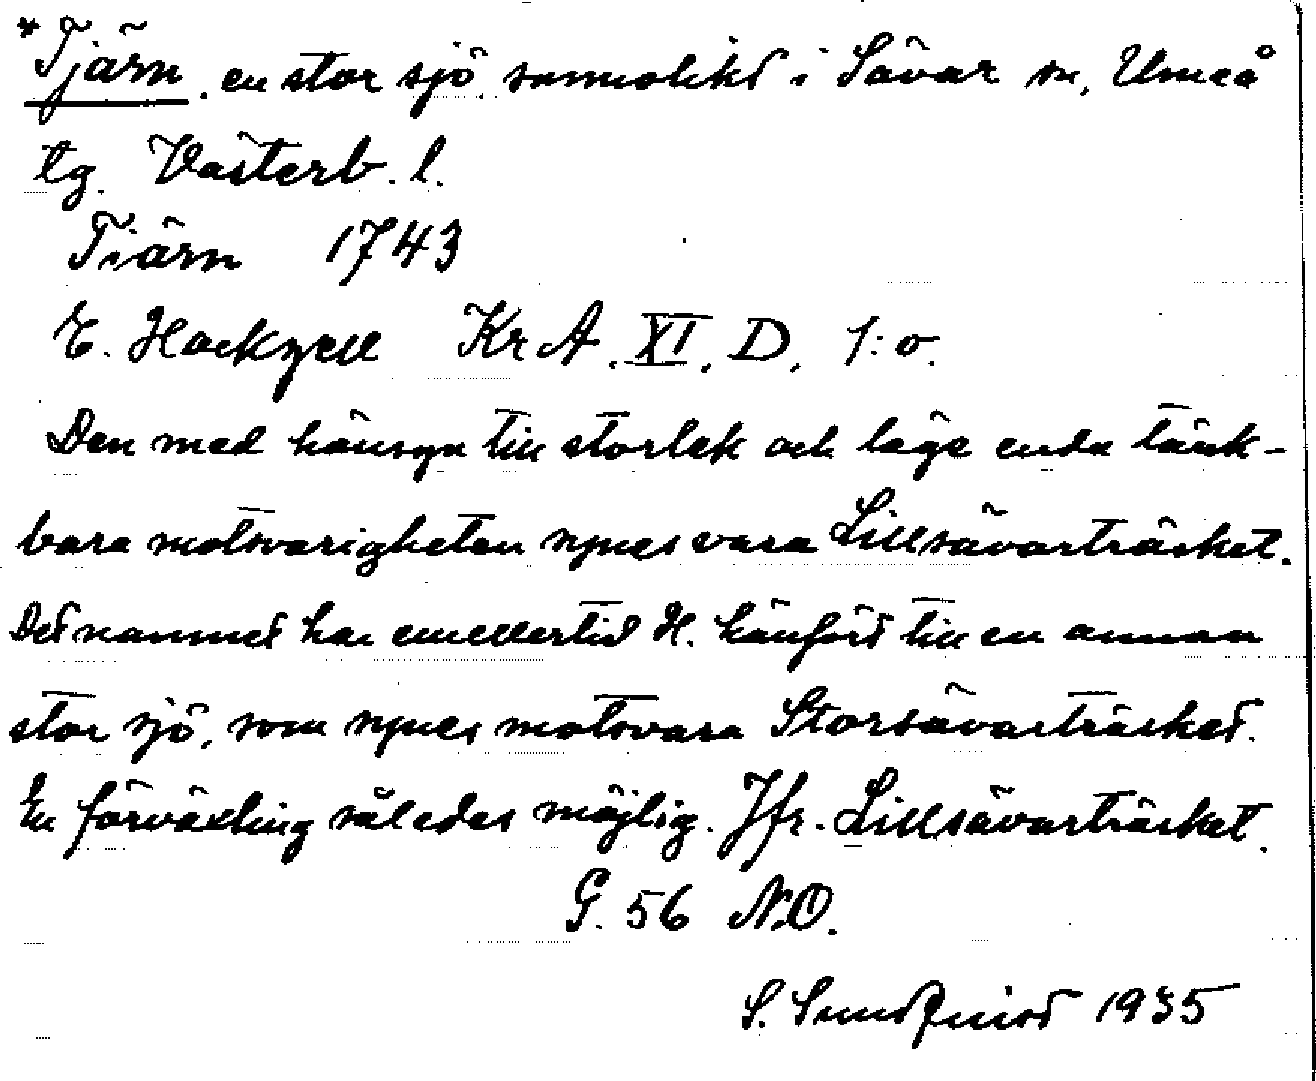 *Tjärn, en stor sjö sannolikt i Sävar sn, Umeå
tg. Västerb. l.
Tiärn 1743
E. Hackzell KrA. XI. D. 1:o.
Den med hänsyn till storlek och läge enda tänk-
bara motsvarigheten synes vara Lillsävarträsket.
Det namnet har emellertid H. hänfört till en annan
stor sjö, som synes motsvara Storsävarträsket.
En förväxling således möjlig. Jfr. Lillsävarträsket.
G. 56 N.O.
S. Sundqvist 1935